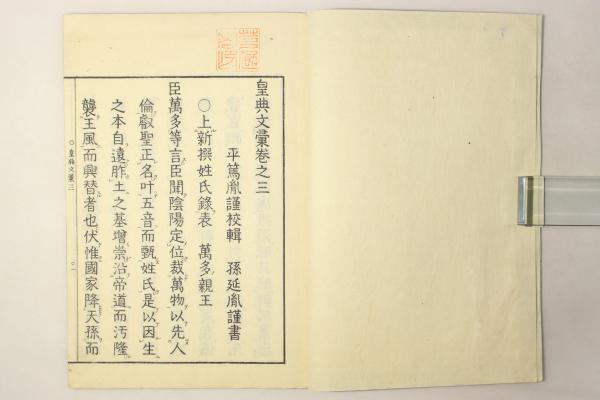 皇典文彙卷之三
平篤胤謹校輯　孫延胤謹書
○上新撰姓氏錄表　萬多親王
臣萬多等言臣聞陰陽定位裁萬物以先人
倫叡聖正名叶五音而甄姓氏是以因生
之本自遠胙土之基增崇沿帝道而汚隆
襲王風而興替者也伏惟國家降天孫而
○皇典文彙三